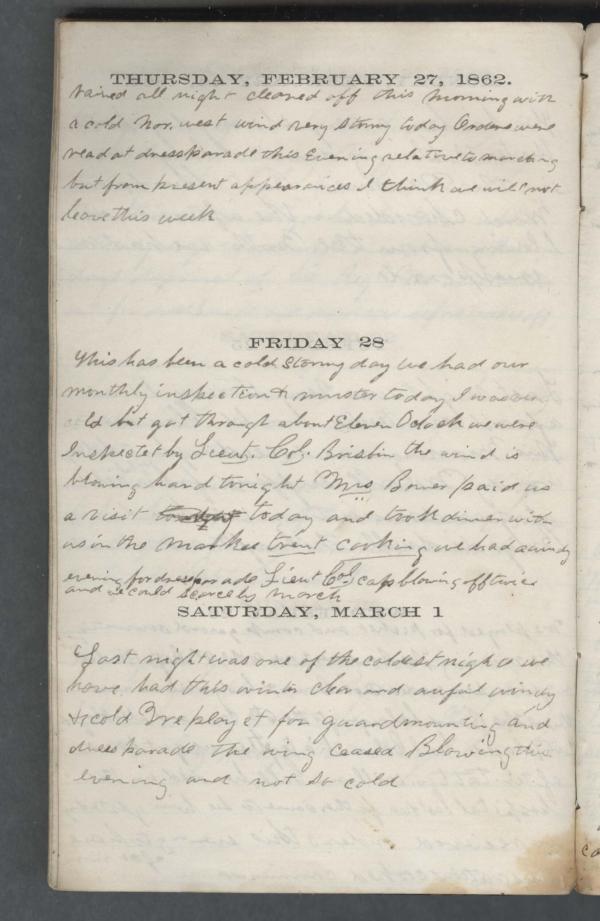 THURSDAY, FEBRUARY 27, 1862.
rained all night cleared off this morning with
a cold Nor. west wind very stormy today Orders were
read at dress parade this Evening relative to marching
but from present appearances I think we will not
leave this week
FRIDAY 28
This has been a cold stormy day we had our
monthly inspection & muster today I was
ld but got through about Eleven Oclock we were
Inspected by Lieut. Col. Brisbin the wind is
blowing hard tonight Mrs Bower paid us
a visit today and took dinner with
us in the Markee trent cooking we had a windy
evening for dress parade Lieut Col cap blowing off twice
and we could scarcely march
SATURDAY, MARCH 1
Last night was one of the coldest nights we
have had this winter clear and awful windy
& cold We playet for guardmounting and
dress parade the wing ceased Blowing this
evening and not so cold